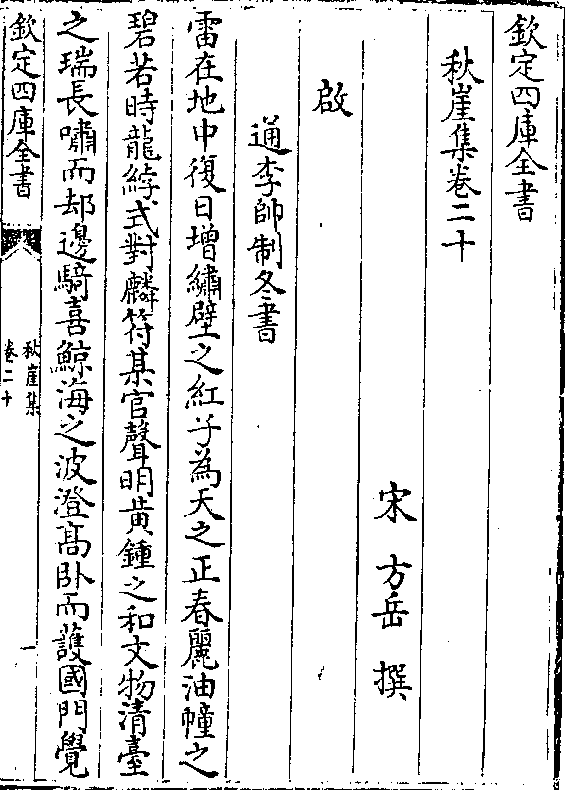 欽定四庫全書
秋崖集卷二十
宋方岳撰
啟
通李帥制冬書
雷在地中復日增繡壁之紅子為天之正春麗油幢之
碧若時龍綍式對麟符某官聲明黄鍾之和文物清臺
之瑞長嘯而却邊騎喜鯨海之波澄髙卧而護國門覺
欽定四庫全書
秋崖集
卷二十
一